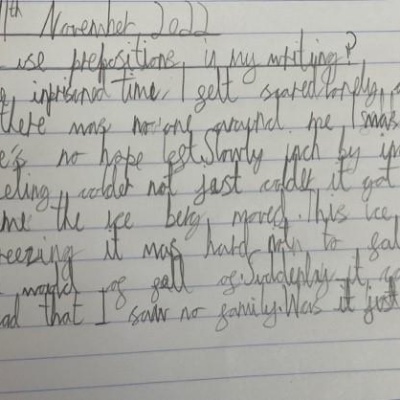 November, 2022
use prepositions, in my writing?
time, I gelt scared, lonely,
there was no one around me I was
no hope lost, Slowly inch by
colder not just colder it got
me the ice berg, moved. This ice,
reezing it was hard to
would og gall og. Suddenlay it
ad that I saw no gamily. Was it just